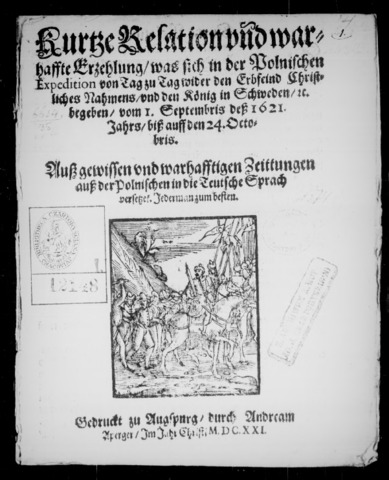 Kurtze Relation vnd war-
haffte Erzehlung/ was sich in der Polnischen
Expedition von Tag zu Tag wider den Erbfeind Christ-
liches Nahmens/ vnd den König in Schweden/ ꝛc.
begeben/ vom 1. Septembris deß 1621.
Jahrs/ biß auff den 24. Octo-
bris.
Auß gewissen vnd warhafftigen Zeittungen
auß der Polnischen in die Teutsche Sprach
versetzt. Jederman zum besten.
1.
12128
Gedruckt zu Augspurg/ durch Andream
Aperger/ Im Jahr Christi, M.DC.XXI.